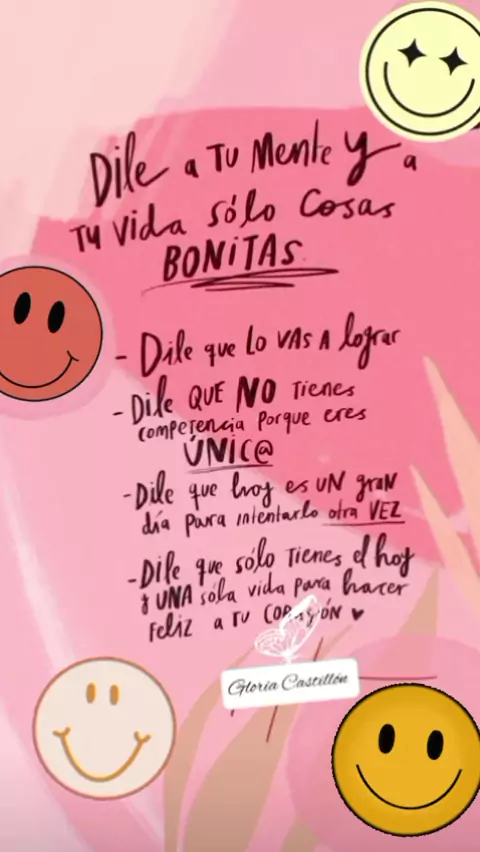 Dile a tu mente y a
tu vida sólo cosas
BONITAS
- Dile que lo vas a lograr
- Dile QUE NO tienes
competencia porque eres
ÚNIC@
- Dile que hoy es UN gran
día para intentarlo otra VEZ
- Dile que sólo tienes el hoy
y UNA sóla vida para hacer
feliz a tu corazón ♥
Gloria Castillón